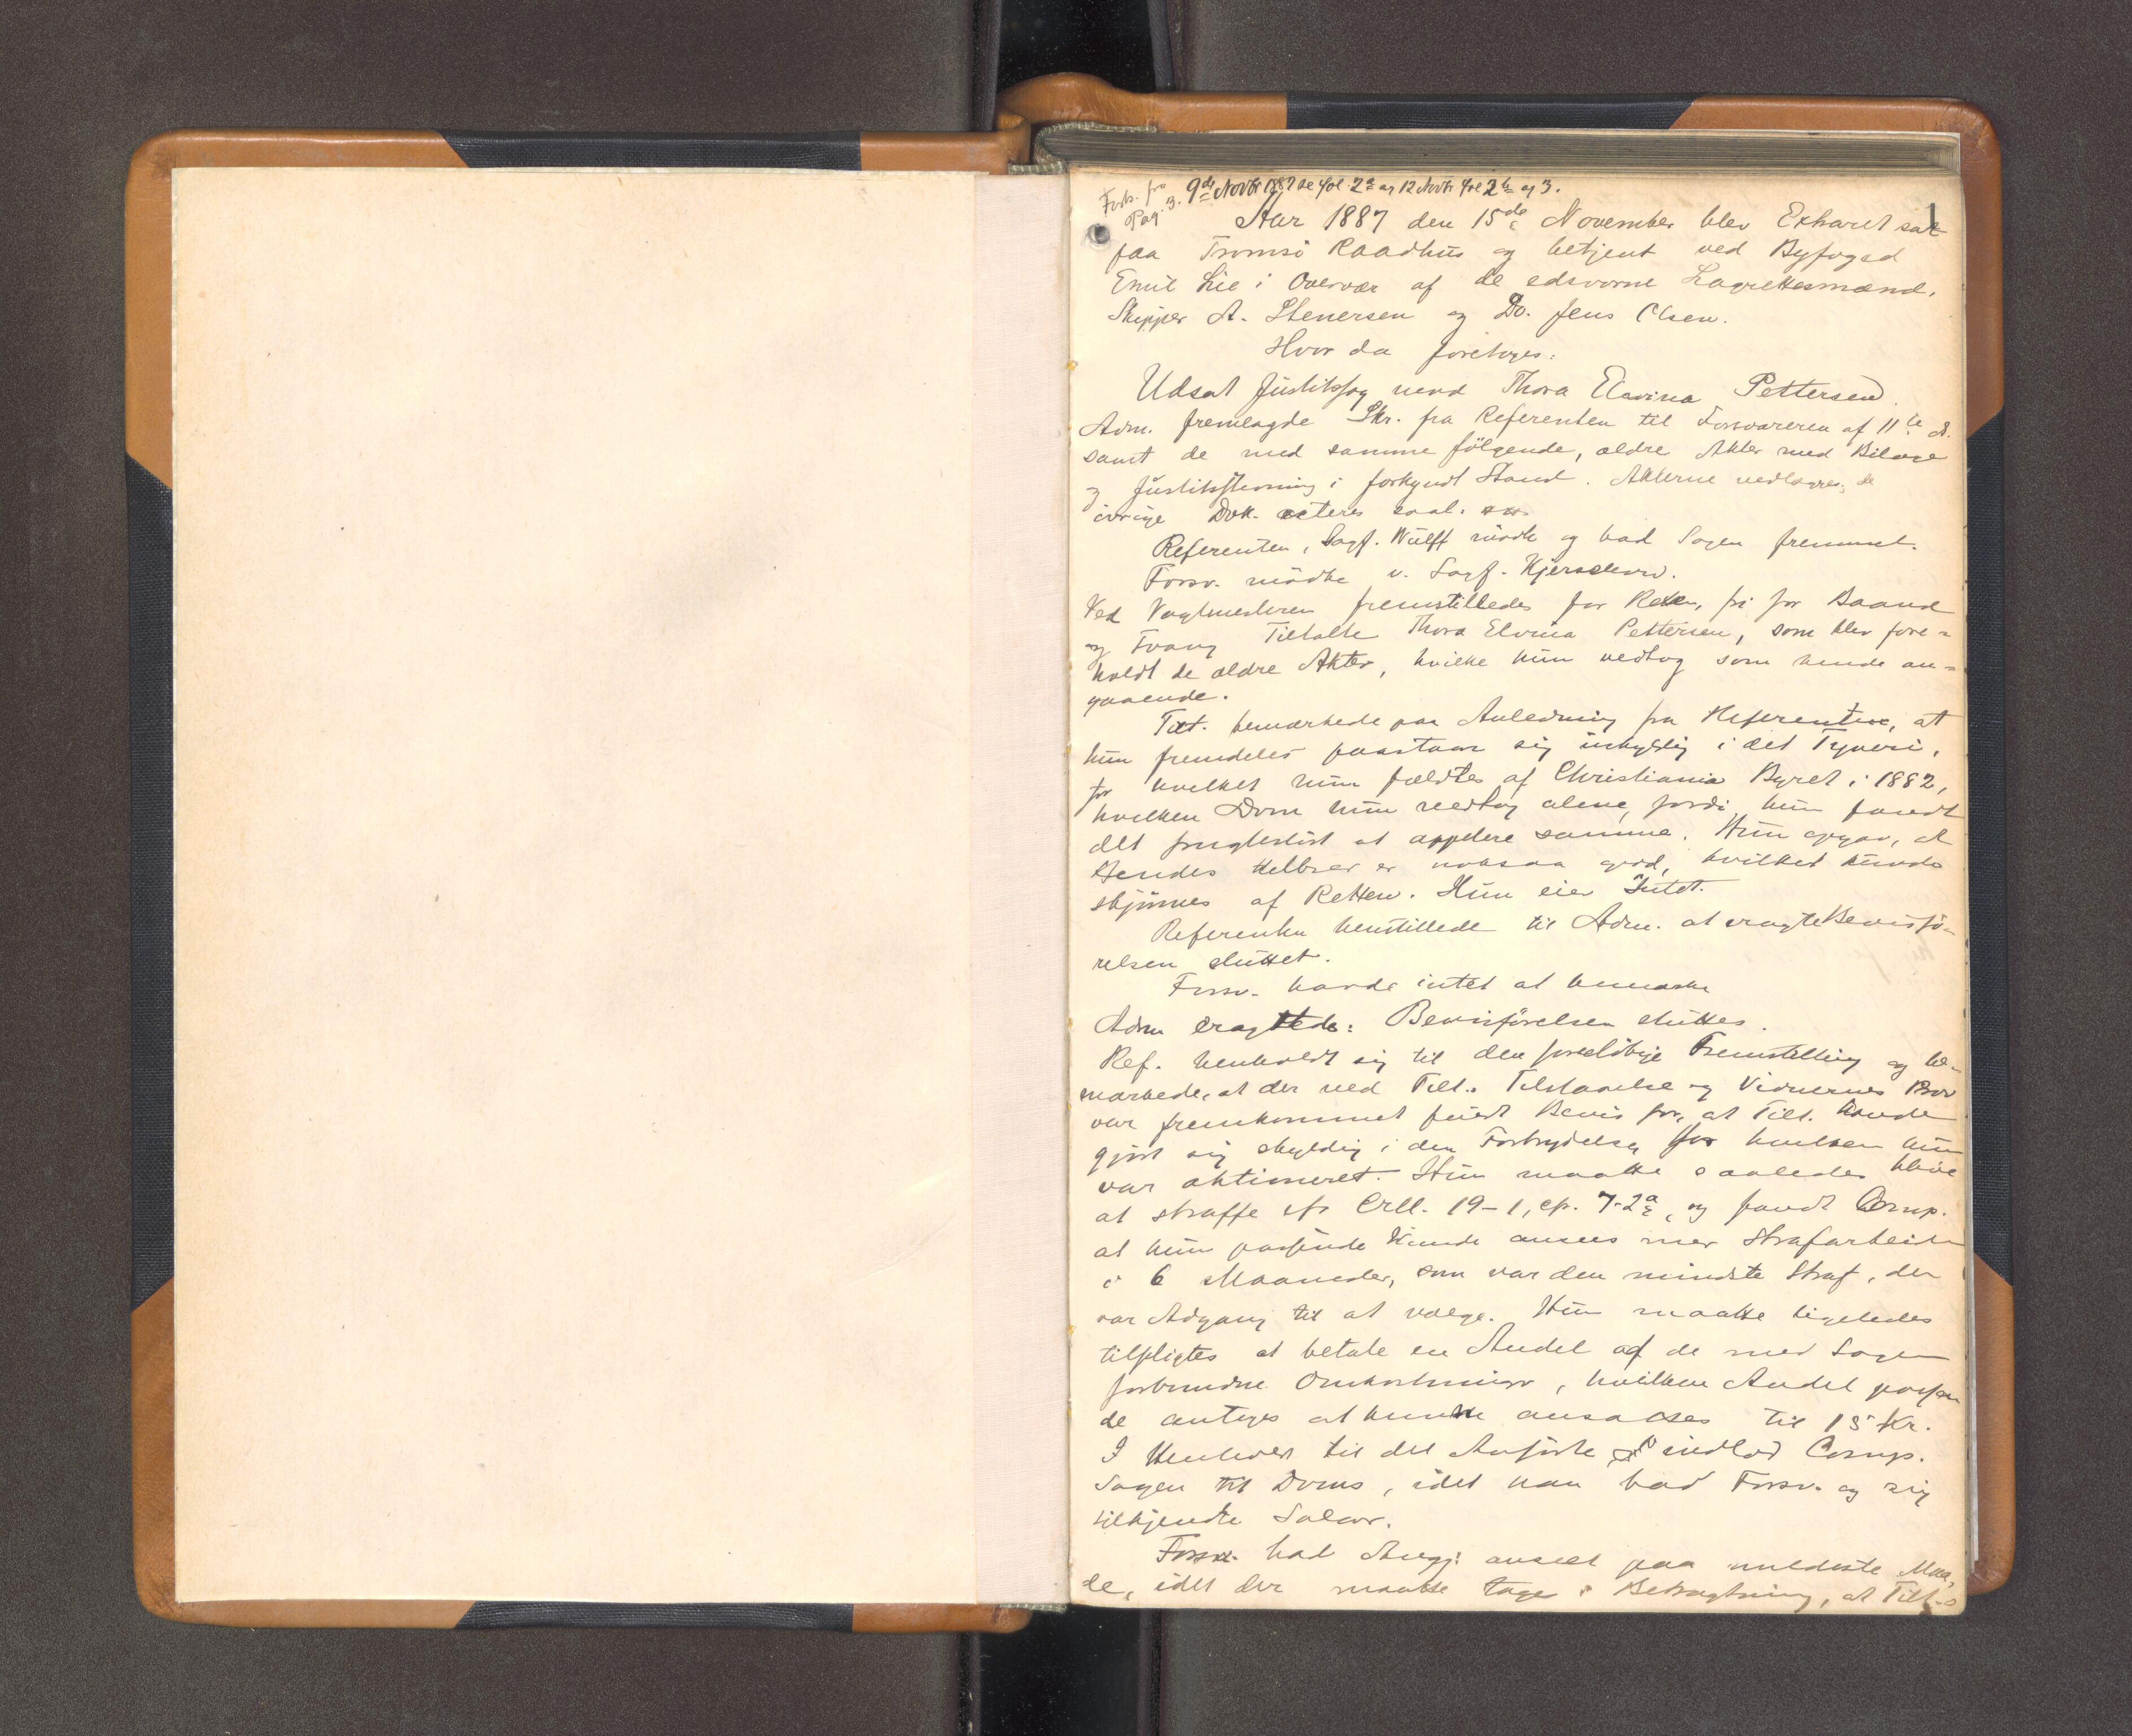 Forts. fra
Pag. 3. 9de Novbr 1887 se Fol. 2a og 12 Novbr Fol 2b og 3.
1
Aar 1887 den 15de November blev Extraret sat
paa Tromsö Raadhus og betjent ved Byfoged
Emil Lie i Overvær af de edsvorne Lagrettesmænd,
Skipper A. Stenersen og Do. Jens Olsen.
Hvor da foretoges:
Udsat Justitssag mod Thora Elavina Pettersen.
Adm. fremlagde Skr. fra Referenten til Forsvareren af 11te ds.
samt de med samme følgende, ældre Akter med Bilage
og Justitsstevning i forkyndt Stand. Akterne vedlægges, de
övrige Dok. citeres saal.
Referenten, Sagf. Wulff mödte og bad Sagen fremmet.
Forsv. mödte v. Sagf. Kjerschow.
Ved Vagtmesteren fremstilledes for Retten, fri for Baand
og Tvang Tiltalte Thora Elvina Pettersen, som blev fore-
holdt de ældre Akter, hvilke hun vedtog som hende an-
gaaende.
Tilt. bemærkede paa Anledning fra Referenten, at
hun fremdeles paastaar sig uskyldig i det Tyveri,
for hvilket hun fældtes af Christiania Byret i 1882,
hvilken Dom hun vedtog alene, fordi hun fandt
det frugteslöst at appelere samme. Hun opgav, at
hendes Helbred er noksaa god, hvilket kunde
skjönnes af Retten. Hun eier Intet.
Referenten henstillede til Adm. at eragte Bevisfö-
relsen sluttet.
Forsv. havde intet at bemærke
Adm eragtede: Bevisförelsen sluttes.
Ref. henholdt sig til den foreløbige Fremstilling og be-
mærkede, at der ved Tilt.s Tilstaaelse og Vidnernes Prov
var fremkommet fuldt Bevis for, at Tilt. havde
gjort sig skyldig i den Forbrydelse, for hvilken hun
var aktioneret. Hun maatte saaledes blive
at straffe efr Crll. 19-1, cfr. 7-2a, og fandt Comp.
at hun passende kunde ansees med Strafarbeide
i 6 Maaneder, som var den mindste Straf, der
var Adgang til at vælge. Hun maatte ligeledes
tilpligtes at betale en Andel af de med Sagen
forbundne Omkostninger, hvilken Andel passen
de antoges at kunne ansættes til 15 Kr.
I Henhold til det Anførte indlod Comp.
Sagen til Doms, idet han bad Forsv. og sig
tilkjendte Salær.
Forsv. bad Angj. anseet paa mildeste Maa-
de, idet der maatte tages i Betragtning, at Tilt.s